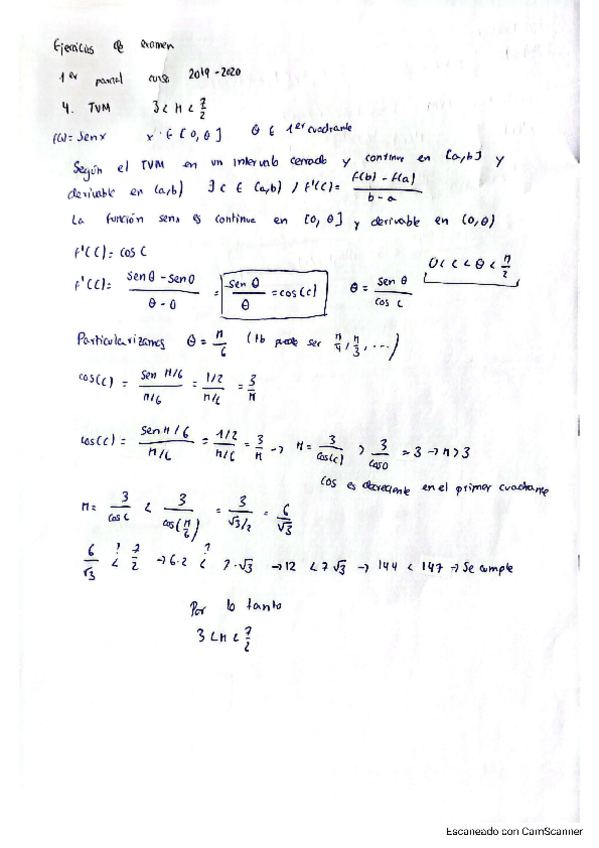 Ejercicios de examen
1er parcial curso 2019-2020
4. TVM 3 < π < 7/2
f(x) = sen x x ∈ [0, θ] θ ∈ 1er cuadrante
Según el TVM en un intervalo cerrado y continua en [a,b] y
derivable en (a,b) ∃ c ∈ (a,b) / f'(c) = (f(b) - f(a))/(b - a)
La función senx es continua en [0, θ] y derivable en (0, θ)
f'(c) = cos c
f'(c) = (sen θ - sen 0)/(θ - 0) = sen θ/θ = cos(c) θ = sen θ/cos c 0 < c < θ < π/2
Particularizamos θ = π/6 (tb puede ser π/4, π/3, ...)
cos(c) = (sen π/6)/(π/6) = (1/2)/(π/6) = 3/π
cos(c) = (sen π/6)/(π/6) = (1/2)/(π/6) = 3/π → π = 3/cos(c) > 3/cos0 = 3 → π > 3
cos es decreciente en el primer cuadrante
π = 3/cos c < 3/cos(π/6) = 3/(√3/2) = 6/√3
6/√3 <? 7/2 → 6·2 <? 7·√3 → 12 < 7√3 → 144 < 147 → Se cumple
Por lo tanto
3 < π < 7/2
Escaneado con CamScanner